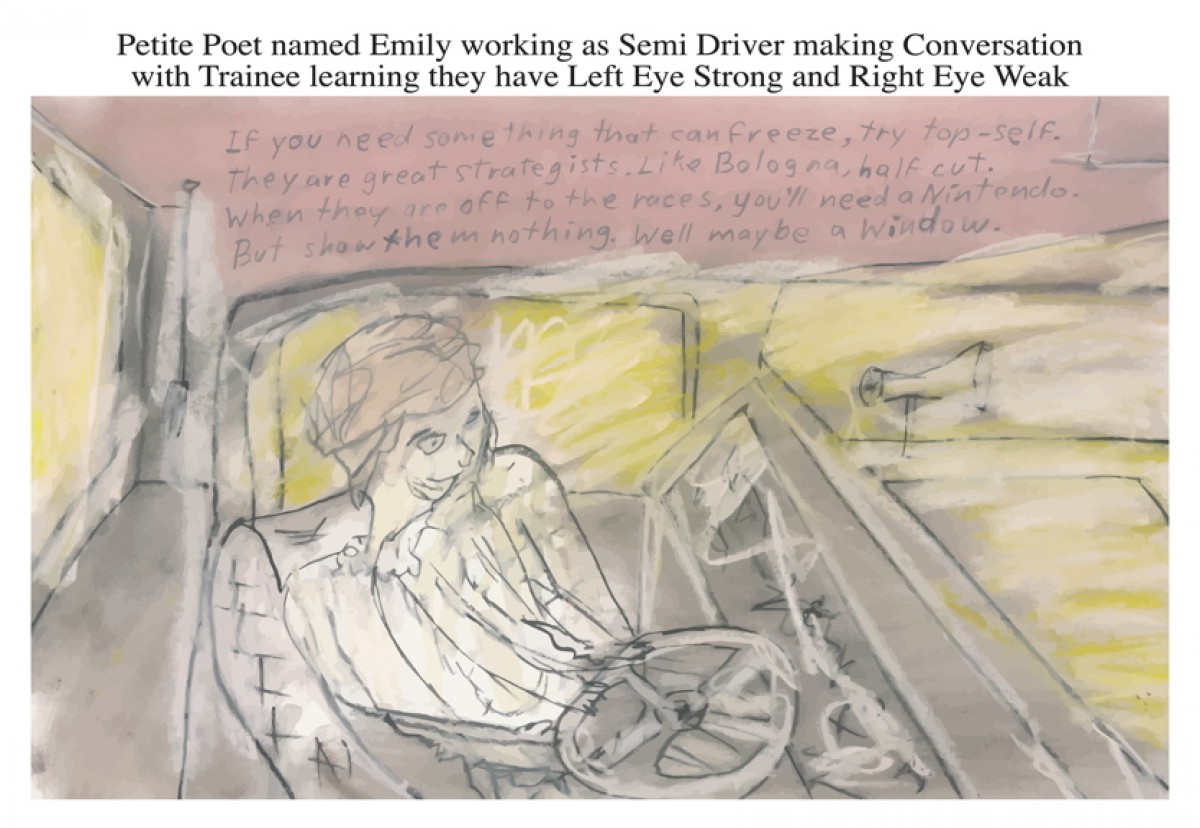 Petite Poet named Emily working as Semi Driver making Conversation
with Trainee learning they have Left Eye Strong and Right Eye Weak
If you need something that can freeze, try top-self.
They are great strategists. Like Bologna, half cut.
When they are off to the races, you'll need a Nintendo.
But show them nothing. Well maybe a Window.